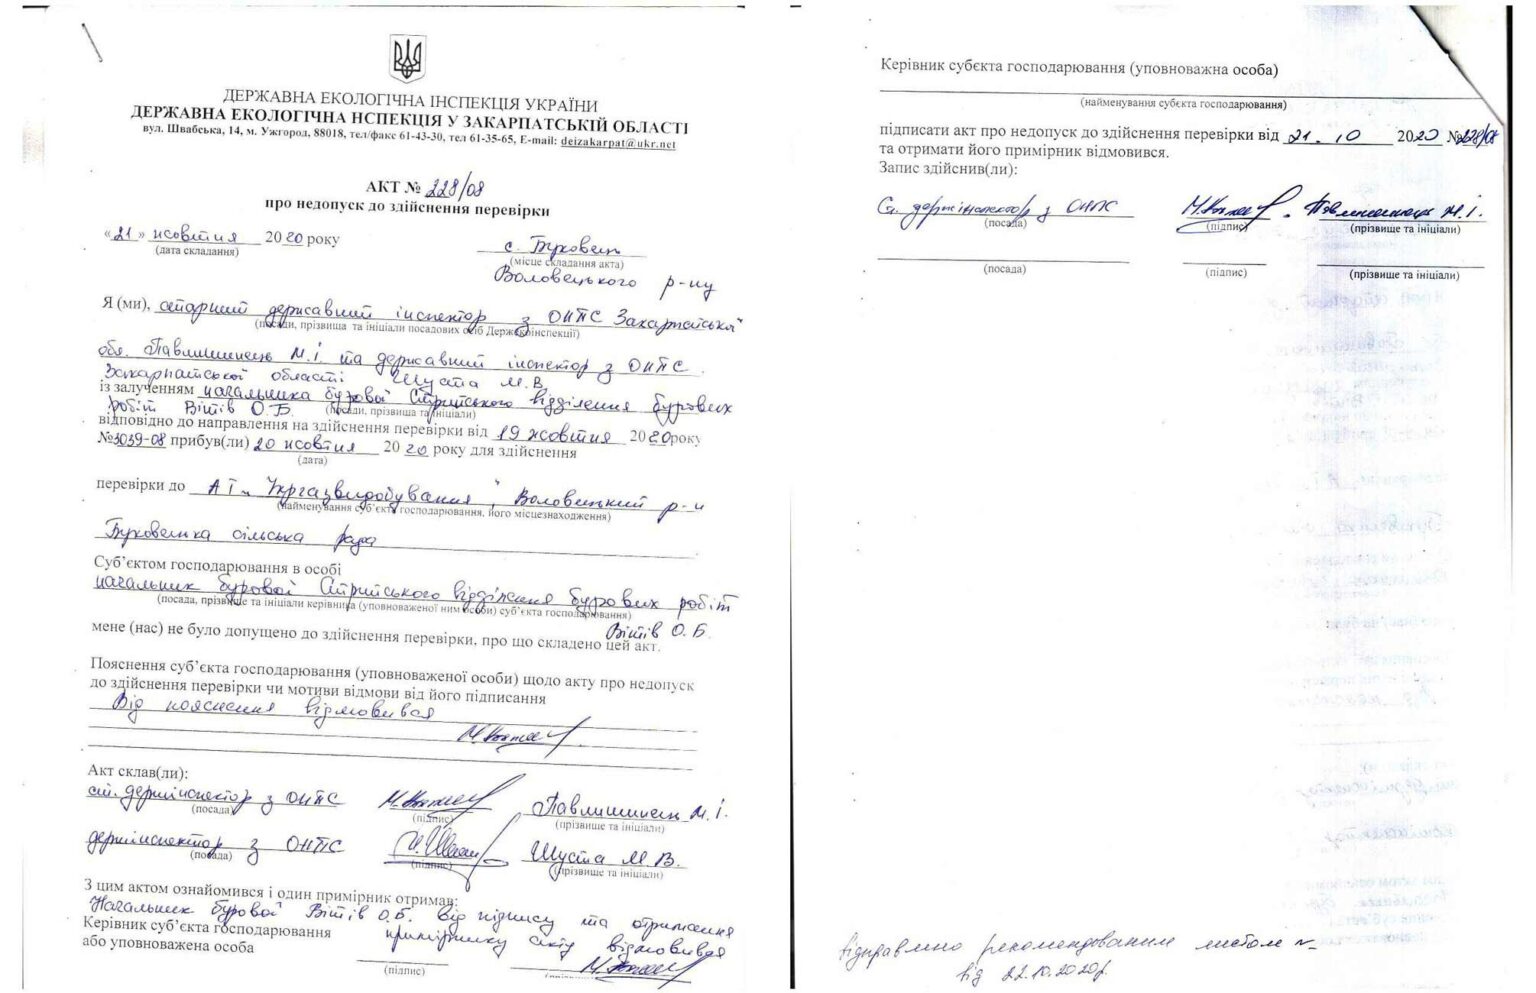 ДЕРЖАВНА ЕКОЛОГІЧНА ІНСПЕКЦІЯ УКРАЇНИ
ДЕРЖАВНА ЕКОЛОГІЧНА НСПЕКЦІЯ У ЗАКАРПАТСЬКІЙ ОБЛАСТІ
вул. Швабська, 14, м. Ужгород, 88018, тел/факс 61-43-30, тел 61-35-65, E-mail: deizakarpat@ukr.net
АКТ № 228/08
про недопуск до здійснення перевірки
«21» жовтня 2020 року
(дата складання)
с. Буковець
(місце складання акта)
Воловецького р-ну
Я (ми), старший державний інспектор з ОНПС Закарпатської
(посади, прізвища та ініціали посадових осіб Держекоінспекції)
обл. Павлишинець М.І. та державний інспектор з ОНПС
Закарпатської області Шуста М.В.
із залученням начальника бурової Стрийського відділення бурових
робіт Вітів О.Б. (посади, прізвища та ініціали)
відповідно до направлення на здійснення перевірки від 19 жовтня 2020 року
№3039-08 прибув(ли) 20 жовтня 2020 року для здійснення
(дата)
перевірки до АТ „Укргазвидобування", Воловецький р-н
(найменування суб'єкта господарювання, його місцезнаходження)
Буковецька сільська рада
Суб'єктом господарювання в особі
начальник бурової Стрийського відділення бурових робіт
(посада, прізвище та ініціали керівника (уповноваженої ним особи) суб'єкта господарювання)
Вітів О.Б.
мене (нас) не було допущено до здійснення перевірки, про що складено цей акт.
Пояснення суб'єкта господарювання (уповноваженої особи) щодо акту про недопуск
до здійснення перевірки чи мотиви відмови від його підписання
Від пояснення відмовився
Акт склав(ли):
ст. держінспектор з ОНПС Павлишинець М.І.
(посада) (підпис) (прізвище та ініціали)
держінспектор з ОНПС Шуста М.В.
(посада) (підпис) (прізвище та ініціали)
З цим актом ознайомився і один примірник отримав:
Начальник бурової Вітів О.Б. від підпису та отримання
Керівник суб'єкта господарювання примірнику акту відмовився
або уповноважена особа
(підпис)
Керівник субєкта господарювання (уповноважна особа)
(найменування субєкта господарювання)
підписати акт про недопуск до здійснення перевірки від 21.10 2020 №228/08
та отримати його примірник відмовився.
Запис здійснив(ли):
Ст. держінспектор з ОНПС Павлишинець М.І.
(посада) (підпис) (прізвище та ініціали)
(посада) (підпис) (прізвище та ініціали)
Відправлено рекомендованим листом
від 22.10.2020р.